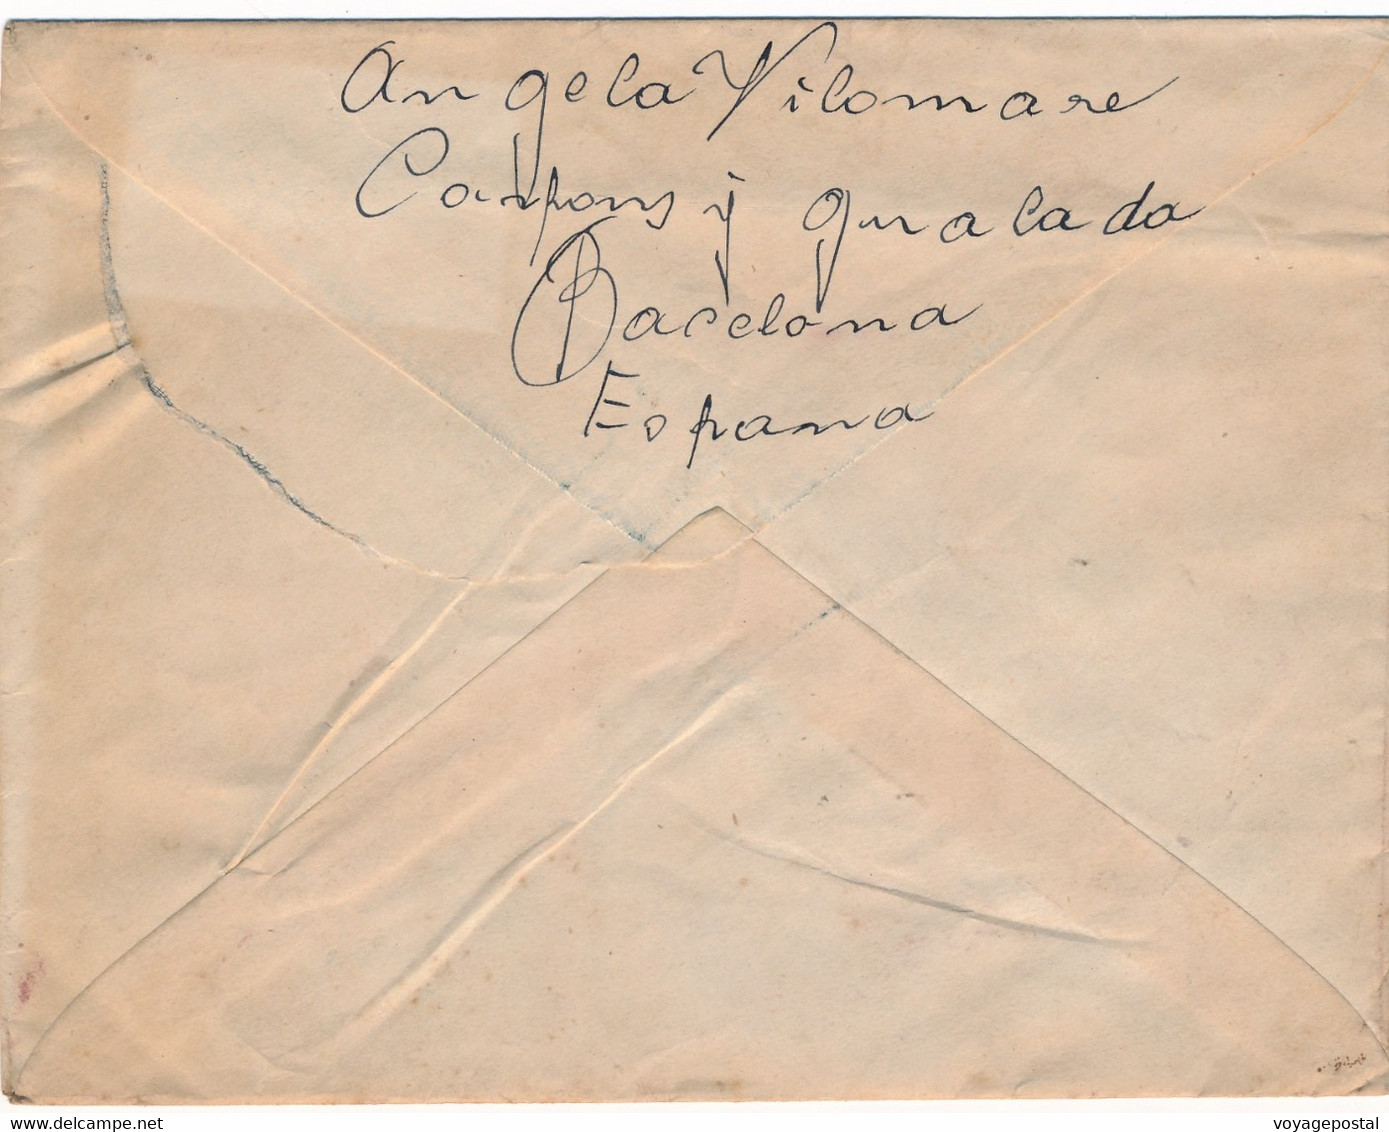 Angela Vilomare
Carpons y gualada
Barcelona
Espana
www.delcampe.net
voyagepostal